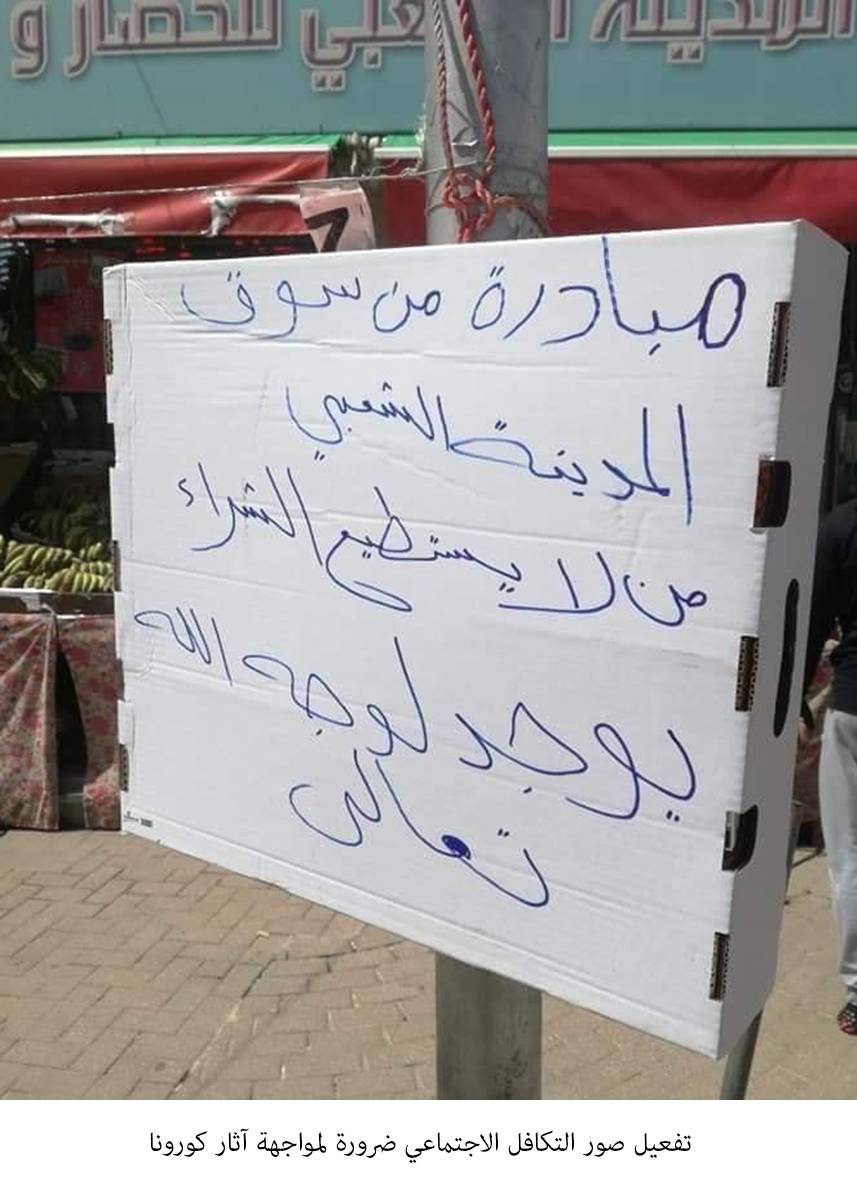 المدينة الشعبي للخضار و
7
مبادرة من سوق
المدينة الشعبي
من لا يستطيع الشراء
يوجد لوجه الله
تعالى
تفعيل صور التكافل الاجتماعي ضرورة لمواجهة آثار كورونا